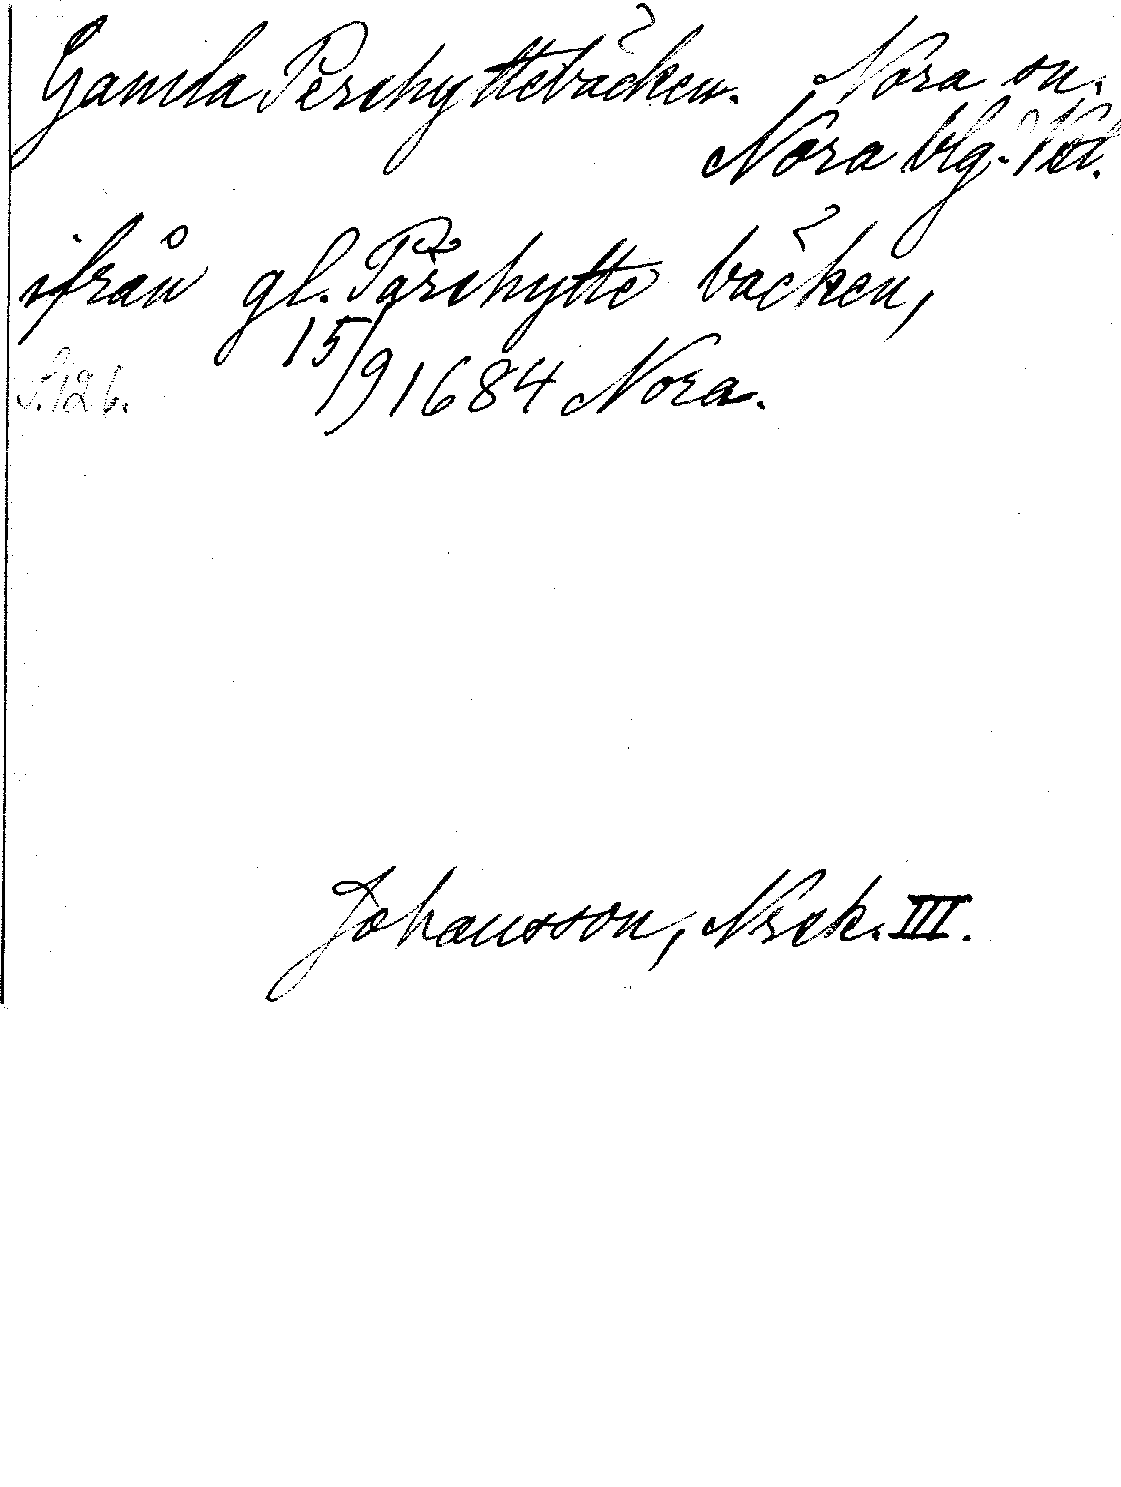 Gamla Pershyttebäcken. Nora sn.
Nora blg. Vstl.
ifrån gl. Pärshytte bäcken,
15/9 1684 Nora.
S. 126.
Johansson, Nrck. III.